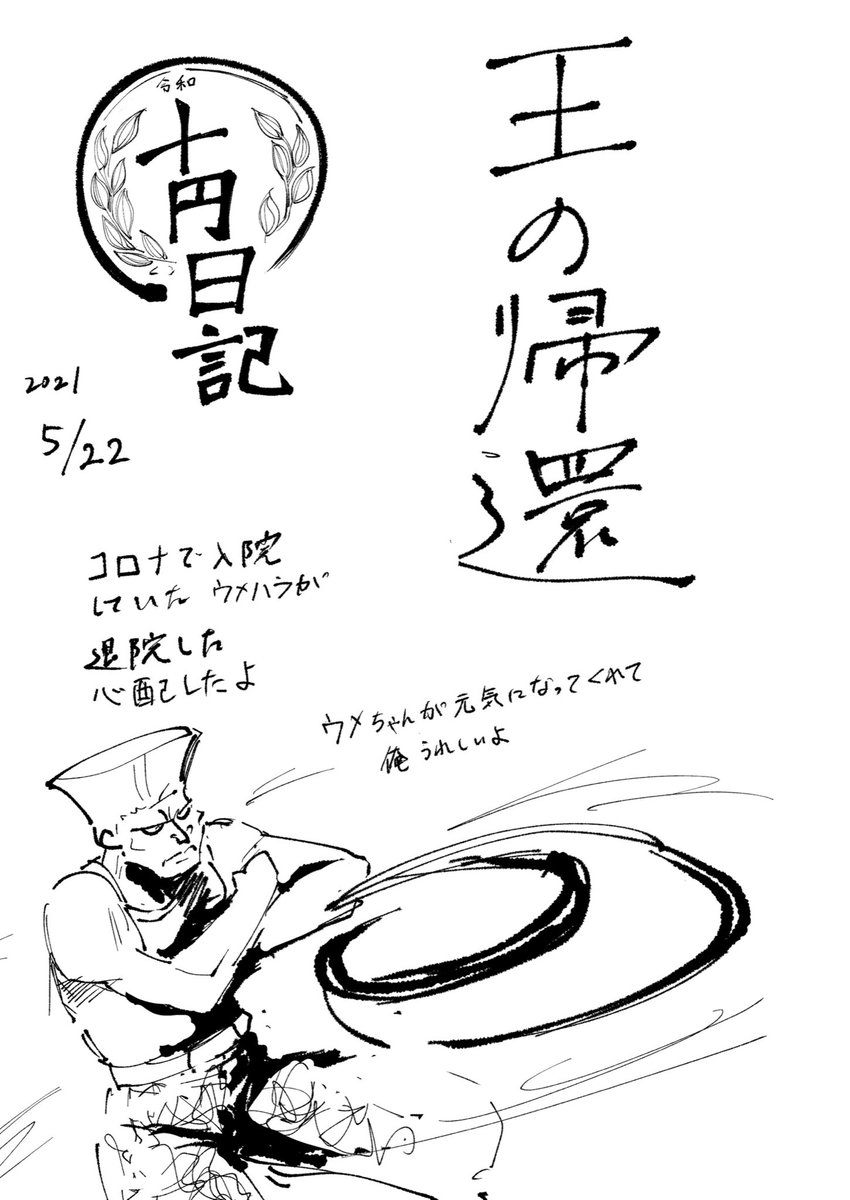 王の帰還
令和
十円日記
2021
5/22
コロナで入院
していた ウメハラが
退院した
心配したよ
ウメちゃんが元気になってくれて
俺うれしいよ